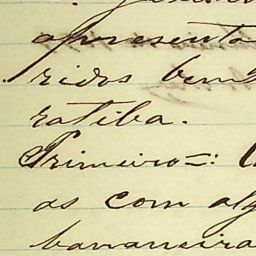 apresenta
ridos bem
ratiba.
Primeiro=:
as com alg
bananeira